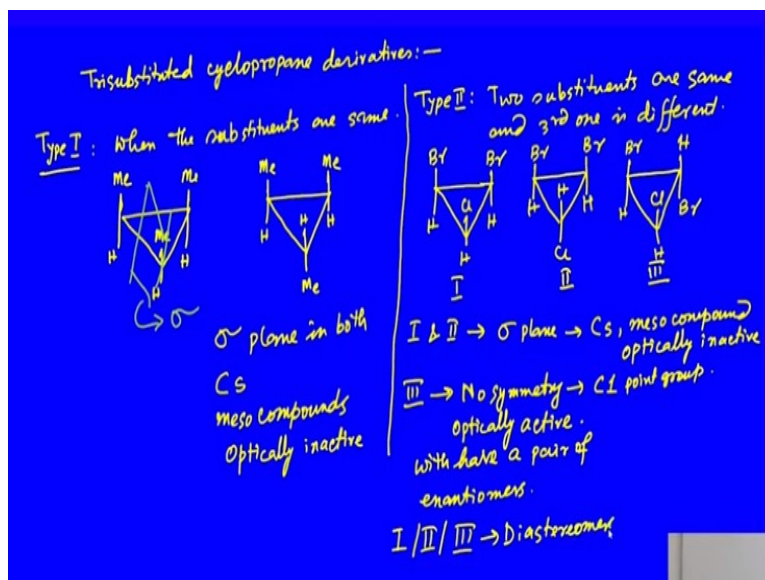 Trisubstituted cyclopropane derivatives:—
Type I : When the substituents are same.
Me Me
Me
H H
H
σ
Me Me
H
H H
Me
σ plane in both
Cs
meso compounds
Optically inactive
Type II : Two substituents are same
and 3rd one is different.
Br Br
Cl
H H
H
I
Br Br
H
H H
Cl
II
Br H
Cl
H Br
H
III
I & II → σ plane → Cs, meso compound
optically inactive
III → No symmetry → C1 point group.
optically active.
with have a pair of
enantiomers.
I/II/III → Diastereomers